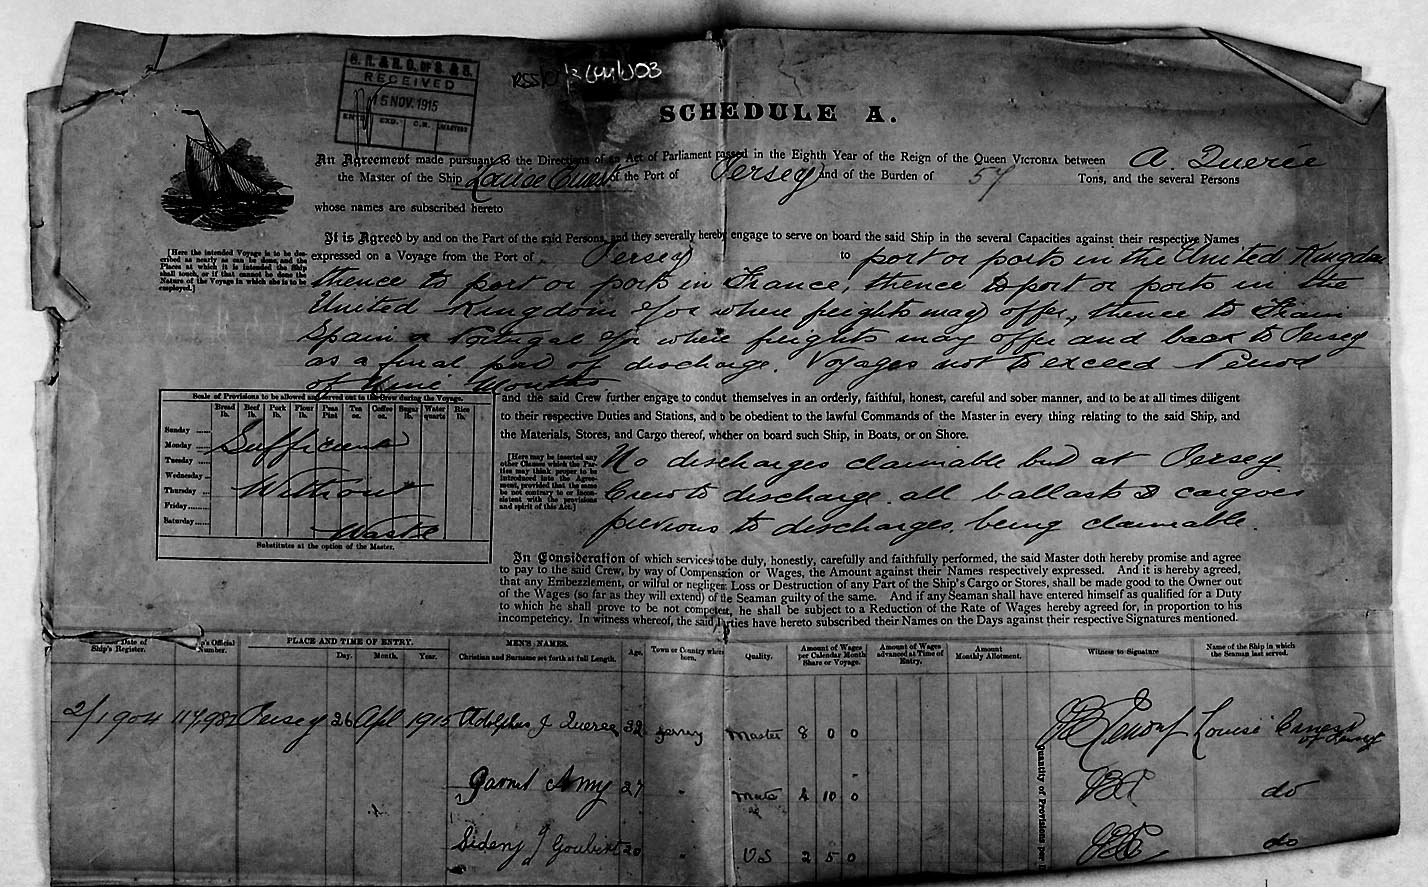 RECEIVED
15 NOV. 1915
ENTD. EXD. C.R. MASTERS
SCHEDULE A.
An Agreement made pursuant to the Directions of an Act of Parliament passed in the Eighth Year of the Reign of the Queen VICTORIA between A. Querée
the Master of the Ship of the Port of Jersey and of the Burden of 57 Tons, and the several Persons
whose names are subscribed hereto
It is Agreed by and on the Part of the said Persons, and they severally hereby engage to serve on board the said Ship in the several Capacities against their respective Names
[Here the intended Voyage is to be described as nearly as can be done, and the Places at which it is intended the Ship shall touch, or if that cannot be done the Nature of the Voyage in which she is to be employed.]
expressed on a Voyage from the Port of Jersey to port or ports in the United Kingdom
thence to port or ports in France, thence to port or ports in the
United Kingdom &/or where freights may offer, thence to
Spain or Portugal &/or where freights may offer and back to Jersey
as a final port of discharge. Voyages not to exceed Period
of Nine Months
Scale of Provisions to be allowed and served out to the Crew during the Voyage.
Bread lb. Beef lb. Pork lb. Flour lb. Peas Pint Tea oz. Coffee oz. Sugar lb. Water quarts Rice lb.
Sunday
Monday
Tuesday
Wednesday
Thursday
Friday
Saturday
Sufficient
Without
Waste
Substitutes at the option of the Master.
and the said Crew further engage to conduct themselves in an orderly, faithful, honest, careful and sober manner, and to be at all times diligent
to their respective Duties and Stations, and to be obedient to the lawful Commands of the Master in every thing relating to the said Ship, and
the Materials, Stores, and Cargo thereof, whether on board such Ship, in Boats, or on Shore.
[Here may be inserted any other Clauses which the Parties may think proper to be introduced into the Agreement, provided that the same be not contrary to or inconsistent with the provisions and spirit of this Act.]
No discharges claimable but at Jersey.
Crew to discharge all ballast & cargoes
previous to discharges being claimable.
In Consideration of which services to be duly, honestly, carefully and faithfully performed, the said Master doth hereby promise and agree
to pay to the said Crew, by way of Compensation or Wages, the Amount against their Names respectively expressed. And it is hereby agreed,
that any Embezzlement, or wilful or negligent Loss or Destruction of any Part of the Ship's Cargo or Stores, shall be made good to the Owner out
of the Wages (so far as they will extend) of the Seaman guilty of the same. And if any Seaman shall have entered himself as qualified for a Duty
to which he shall prove to be not competent, he shall be subject to a Reduction of the Rate of Wages hereby agreed for, in proportion to his
incompetency. In witness whereof, the said Parties have hereto subscribed their Names on the Days against their respective Signatures mentioned.
Date of Ship's Register. Official Number. PLACE AND TIME OF ENTRY. Day. Month. Year. MEN'S NAMES. Christian and Surname set forth at full Length. Age. Town or Country where born. Quality. Amount of Wages per Calendar Month Share or Voyage. Amount of Wages advanced at Time of Entry. Amount Monthly Allotment. Witness to Signature Name of the Ship in which the Seaman last served.
2/1904 117,982 Jersey 26 Apl 1915 Adolphus J Queree 32 Jersey Master 8 0 0 Louise Ernest of Jersey
Garnet Amy 27 " Mate 4 10 0 do
Sidney J Goubert 20 " O.S 2 5 0 do
Quantity of Provisions per